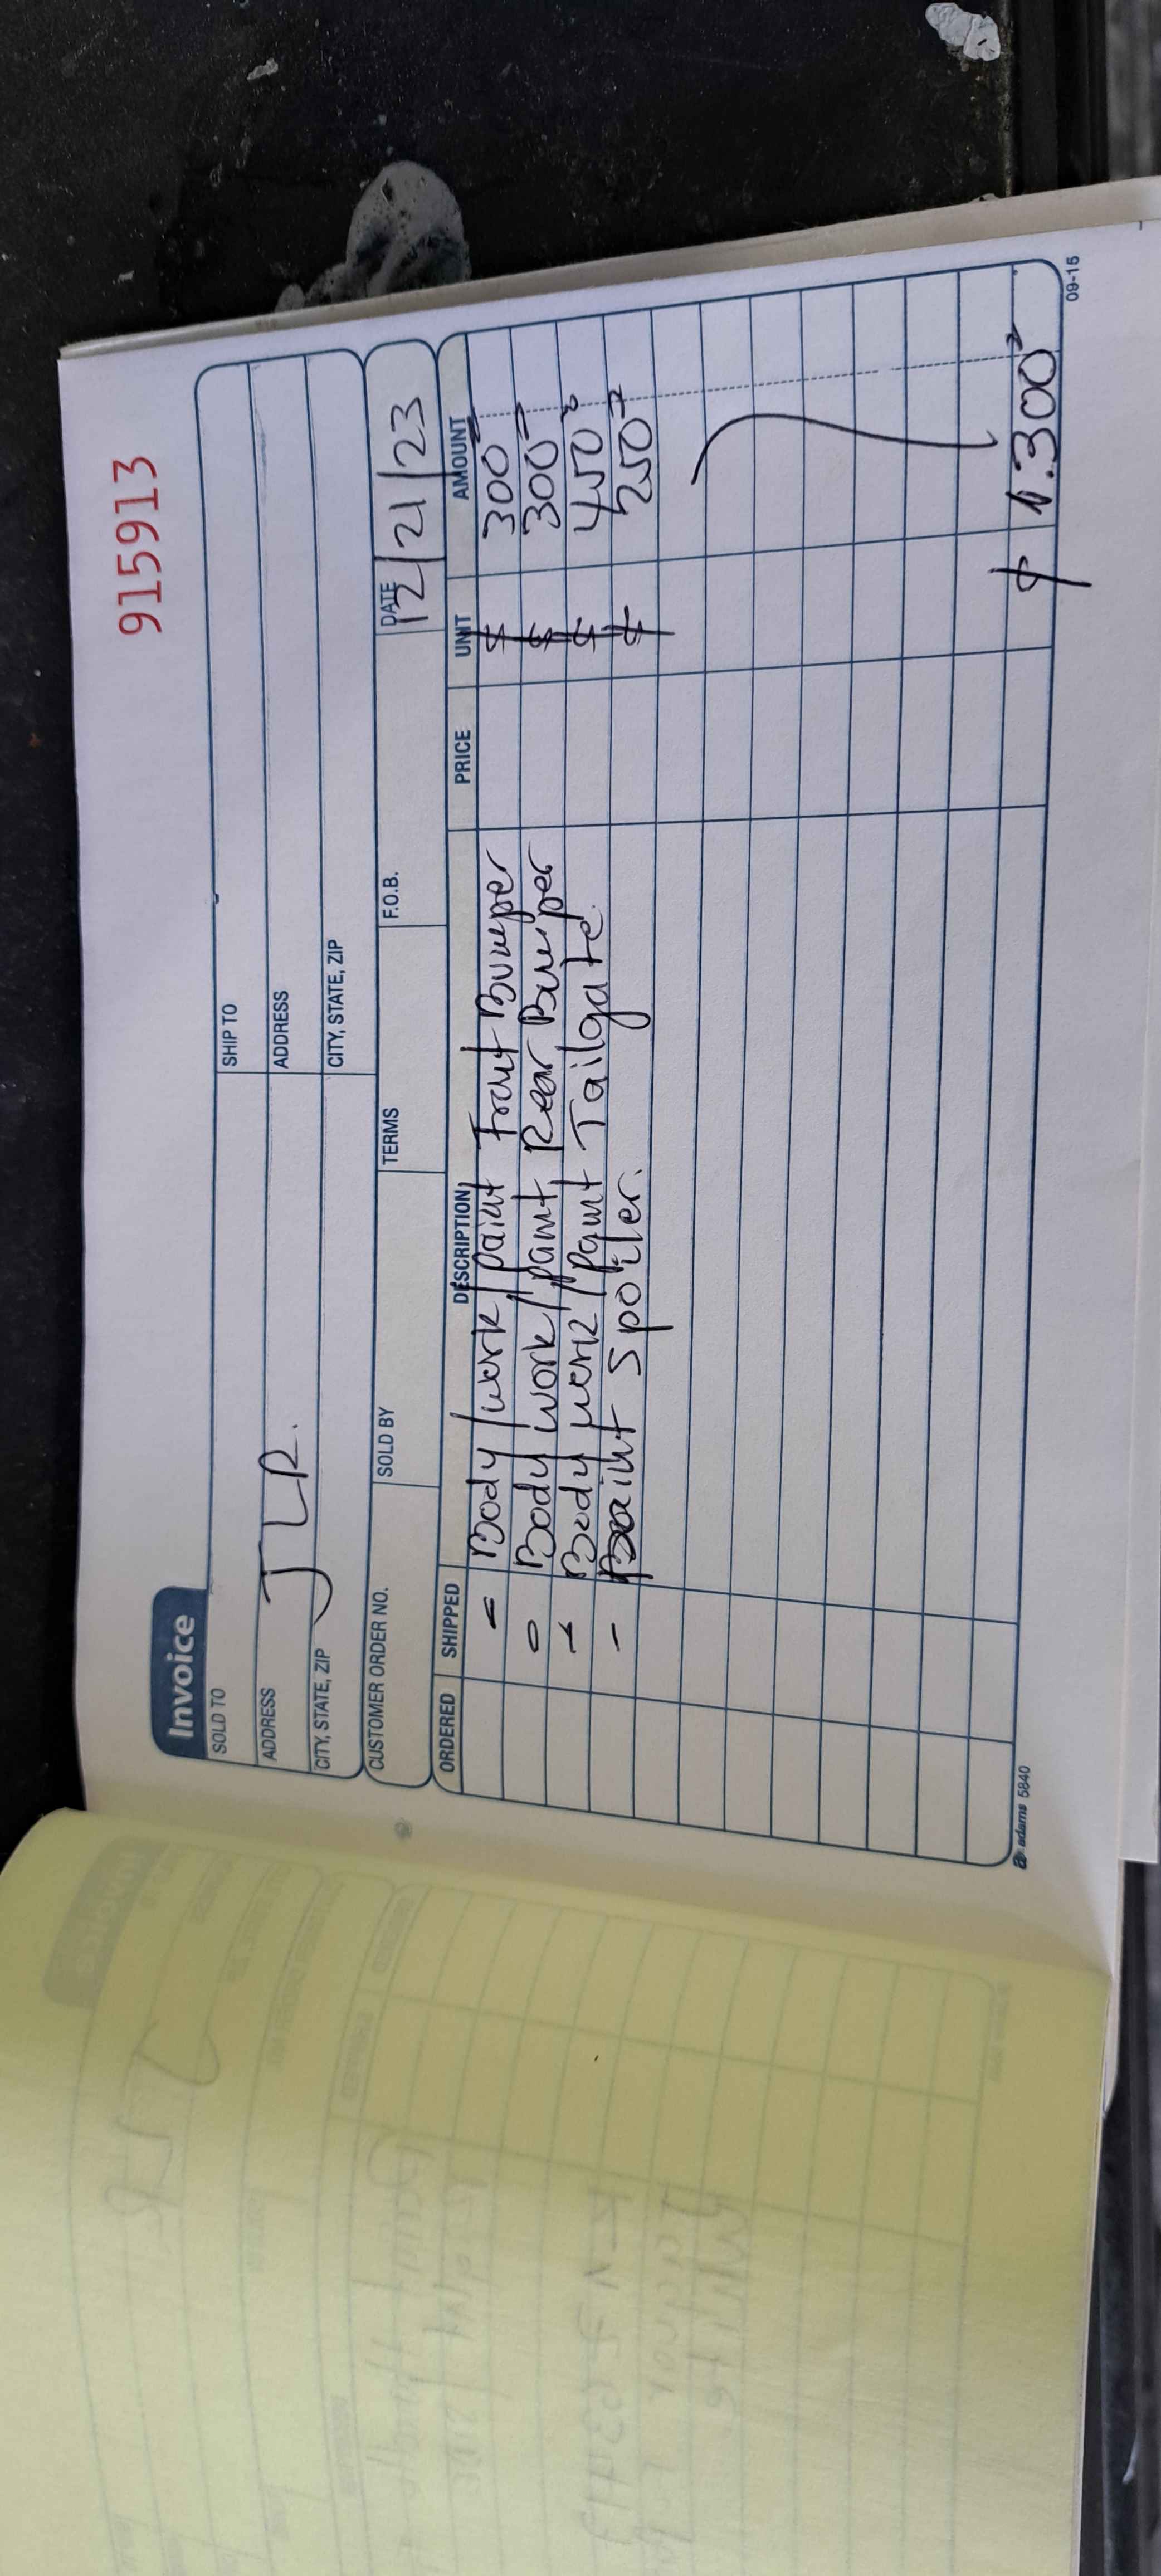 915913
Invoice
SOLD TO
SHIP TO
ADDRESS
JLR.
ADDRESS
CITY, STATE, ZIP
CITY, STATE, ZIP
CUSTOMER ORDER NO. SOLD BY TERMS F.O.B. DATE
12/21/23
ORDERED SHIPPED DESCRIPTION PRICE UNIT AMOUNT
Body/work/paint Front Bumper $ 300
Body work/paint, Rear Bumper $ 300
Body work/paint Tailgate. $ 450
Paint Spoiler. $ 250
$ 1.300
adams 5840
09-15